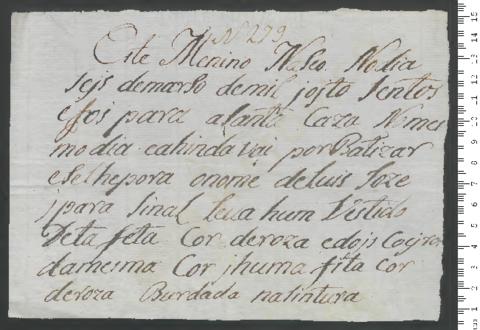 N 299
Este Menino Naseo No dia
seis demarso de mil joito sentos
e foi para aSanta Caza Nomes
modia eahinda Vai por Batizar
eselhepora onome deluis Joze
jpara sinal leva hum Vestido
Cor deroza edois
damesma Cor jhuma fita Cor
deroza Burdada nasintura